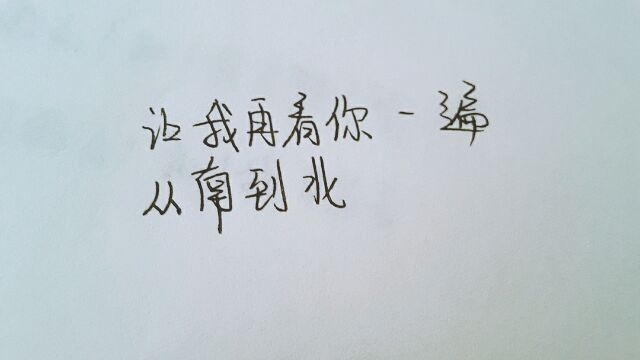 让我再看你一遍
从南到北